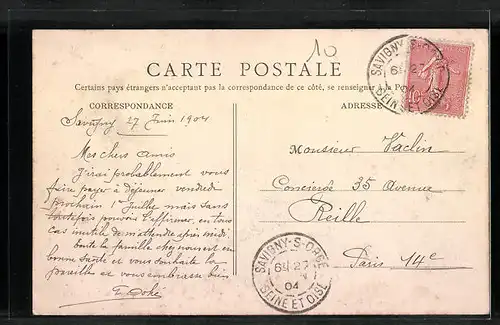 10
CARTE POSTALE
Certains pays étrangers n'acceptant pas la correspondance de ce côté, se renseigner à la Poste
CORRESPONDANCE
ADRESSE
Savigny 27 Juin 1904
Mes chers amis
J'irai probablement vous
faire payer à déjeuner vendredi
prochain 1er Juillet mais sans
toutefois pouvoir l'affirmer, en tous
cas inutile de m'attendre après midi
toute la famille chez nous est en
bonne santé et vous souhaite la
pareille et vous embrasse bien
Monsieur Vaclin
Concierge 35 Avenue
Reille
Paris 14e
SAVIGNY-S-ORGE
6E 27
04
SEINE ET OISE
SAVIGNY-S-ORGE
6E 27
04
SEINE ET OISE